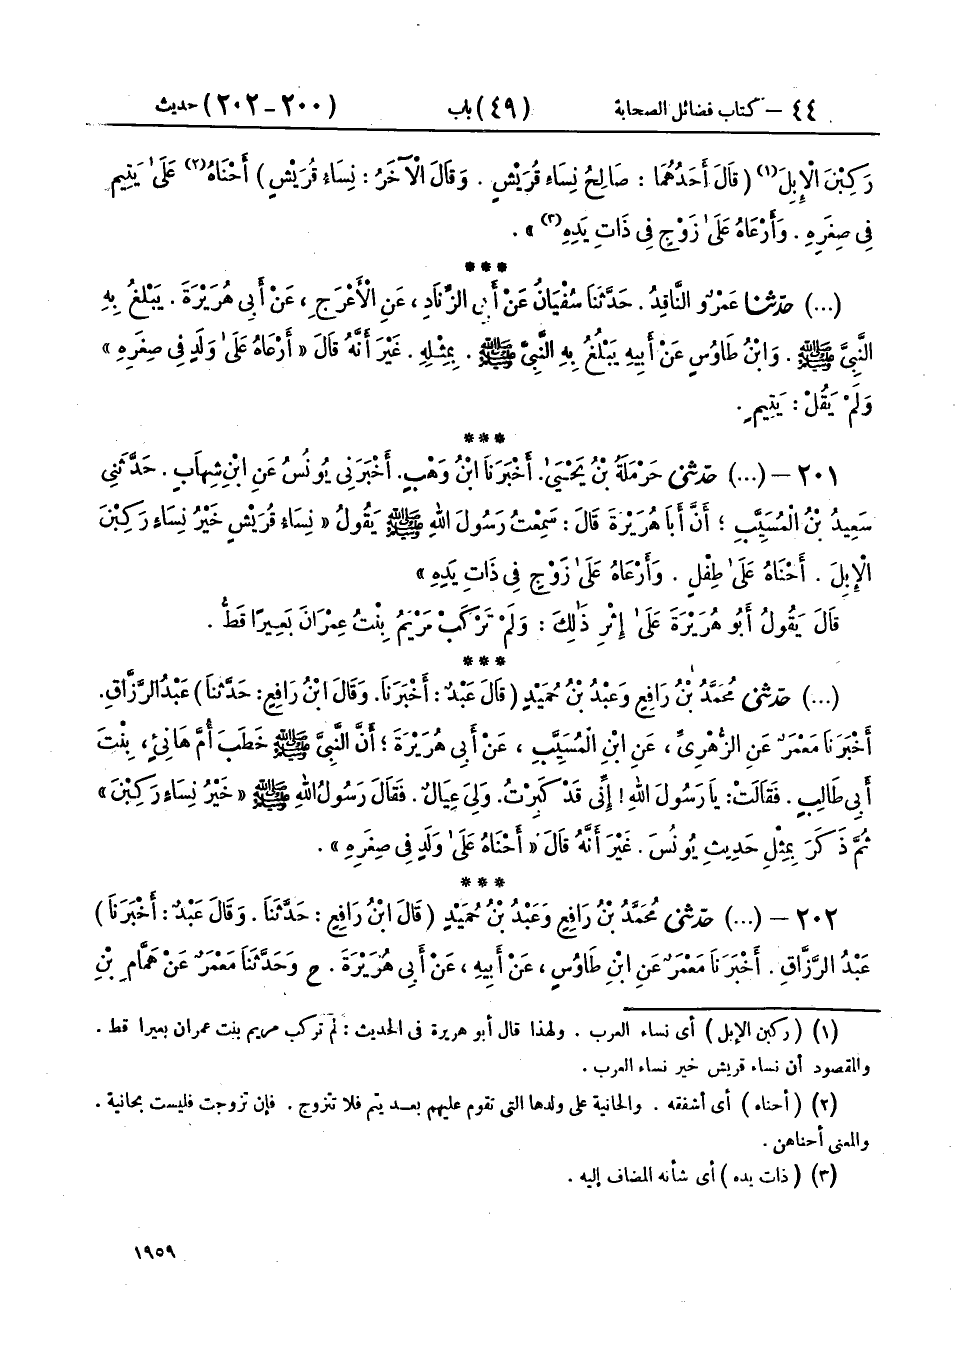 ٤٤ – كتاب فضائل الصحابة (٤٩) باب (٢٠٠ – ٢٠٢) حديث
رَكِبْنَ الْإِبِلَ(١) ( قَالَ أَحَدُهُمَا : صَالِحُ نِسَاءِ قُرَيْشٍ . وَقَالَ الْآخَرُ : نِسَاءِ قُرَيْشٍ ) أَحْنَاهُ(٢) عَلَىٰ يَتِيمٍ
فِى صِغَرِهِ . وَأَرْعَاهُ عَلَىٰ زَوْجٍ فِى ذَاتِ يَدِهِ(٣) » .
***
(...) حَدَّثَنَا عَمْرٌو النَّاقِدُ . حَدَّثَنَا سُفْيَانُ عَنْ أَبِى الزِّنَادِ ، عَنِ الْأَعْرَجِ ، عَنْ أَبِى هُرَيْرَةَ . يَبْلُغُ بِهِ
النَّبِىَّ ﷺ . وَابْنُ طَاوُسٍ عَنْ أَبِيهِ يَبْلُغُ بِهِ النَّبِىَّ ﷺ . بِمِثْلِهِ . غَيْرَ أَنَّهُ قَالَ « أَرْعَاهُ عَلَىٰ وَلَدٍ فِى صِغَرِهِ »
وَلَمْ يَقُلْ : يَتِيمٍ .
***
٢٠١ – (...) حَدَّثَنِى حَرْمَلَةُ بْنُ يَحْيَىٰ. أَخْبَرَنَا ابْنُ وَهْبٍ. أَخْبَرَنِى يُونُسُ عَنِ ابْنِ شِهَابٍ . حَدَّثَنِى
سَعِيدُ بْنُ الْمُسَيَّبِ ؛ أَنَّ أَبَا هُرَيْرَةَ قَالَ : سَمِعْتُ رَسُولَ اللهِ ﷺ يَقُولُ « نِسَاءُ قُرَيْشٍ خَيْرُ نِسَاءٍ رَكِبْنَ
الْإِبِلَ . أَحْنَاهُ عَلَىٰ طِفْلٍ . وَأَرْعَاهُ عَلَىٰ زَوْجٍ فِى ذَاتِ يَدِهِ »
قَالَ يَقُولُ أَبُو هُرَيْرَةَ عَلَىٰ إِثْرِ ذَٰلِكَ : وَلَمْ تَرْكَبْ مَرْيَمُ بِنْتُ عِمْرَانَ بَعِيرًا قَطُّ .
***
(...) حَدَّثَنِى مُحَمَّدُ بْنُ رَافِعٍ وَعَبْدُ بْنُ حُمَيْدٍ ( قَالَ عَبْدٌ : أَخْبَرَنَا. وَقَالَ ابْنُ رَافِعٍ: حَدَّثَنَا ) عَبْدُ الرَّزَّاقِ.
أَخْبَرَنَا مَعْمَرٌ عَنِ الزُّهْرِىِّ ، عَنِ ابْنِ الْمُسَيَّبِ ، عَنْ أَبِى هُرَيْرَةَ ؛ أَنَّ النَّبِىَّ ﷺ خَطَبَ أُمَّ هَانِئٍ ، بِنْتَ
أَبِى طَالِبٍ . فَقَالَتْ: يَا رَسُولَ اللهِ ! إِنِّى قَدْ كَبِرْتُ. وَلِىَ عِيَالٌ . فَقَالَ رَسُولُ اللهِ ﷺ « خَيْرُ نِسَاءٍ رَكِبْنَ »
ثُمَّ ذَكَرَ بِمِثْلِ حَدِيثِ يُونُسَ . غَيْرَ أَنَّهُ قَالَ « أَحْنَاهُ عَلَىٰ وَلَدٍ فِى صِغَرِهِ » .
***
٢٠٢ – (...) حَدَّثَنِى مُحَمَّدُ بْنُ رَافِعٍ وَعَبْدُ بْنُ حُمَيْدٍ ( قَالَ ابْنُ رَافِعٍ : حَدَّثَنَا . وَقَالَ عَبْدٌ : أَخْبَرَنَا )
عَبْدُ الرَّزَّاقِ . أَخْبَرَنَا مَعْمَرٌ عَنِ ابْنِ طَاوُسٍ ، عَنْ أَبِيهِ ، عَنْ أَبِى هُرَيْرَةَ . ح وَحَدَّثَنَا مَعْمَرٌ عَنْ هَمَّامِ بْنِ
(١) ( ركبن الإبل ) أى نساء العرب . ولهذا قال أبو هريرة فى الحديث : لم تركب مريم بنت عمران بعيرا قط .
والمقصود أن نساء قريش خير نساء العرب .
(٢) ( أحناه ) أى أشفقه . والحانية على ولدها التى تقوم عليهم بعد يتم فلا تتزوج . فإن تزوجت فليست بحانية .
والمعنى أحناهن .
(٣) ( ذات يده ) أى شأنه المضاف إليه .
١٩٥٩